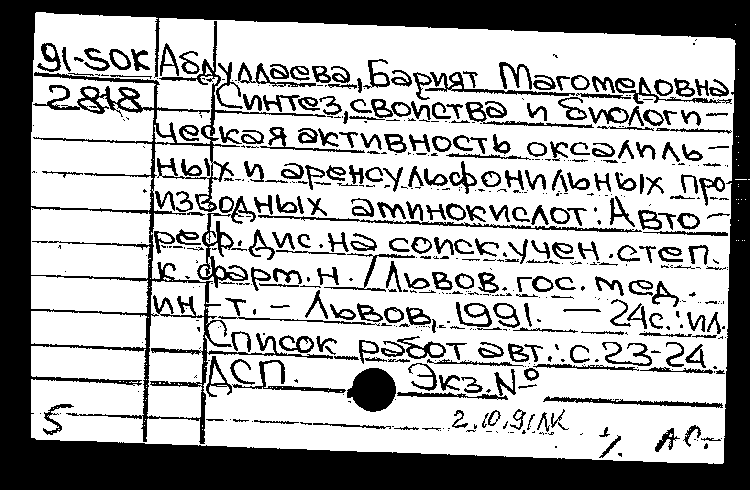 91-50К Абдуллаева, Барият Магомедовна.
2818 Синтез, свойства и биологи-
ческая активность оксалиль-
ных и аренсульфонильных про-
изводных аминокислот: Авто-
реф. дис. на соиск. учен. степ.
к. фарм. н. / Львов. гос. мед.
ин-т. - Львов, 1991. - 24с.: ил.
Список работ авт.: с. 23-24.
ДСП. Экз. №
5 2.10.91